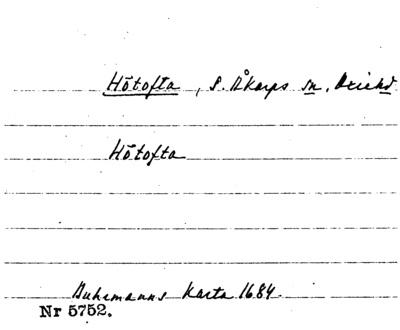 Hötofta, S. Åkarps sn, Oxiehd
Hötofta
Buhrmanns Karta 1684.
Nr 5752.